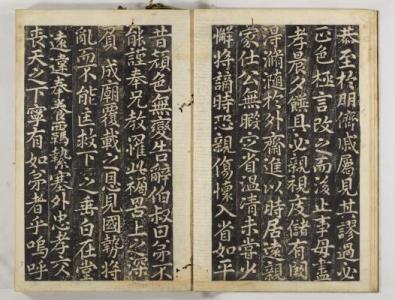 恭至於朋儕戚屬見其謬過必
正色極言改之而後止事母盡
孝晨夕饌具必親視度儲有
得滫瀡於外齋進以時居遠親
家仕公無曠省溫清未嘗少
懈將謫時恐親傷懷入省如平
昔顏色無告辭伯叔曰弟不
能謹奉兄教罹此禍咎上之深
負成廟覆載之恩見國勢將
亂而不能匡救下之垂白在堂
遠違奉養羈縶塞外忠孝交
喪天之下寧有如弟者乎嗚呼